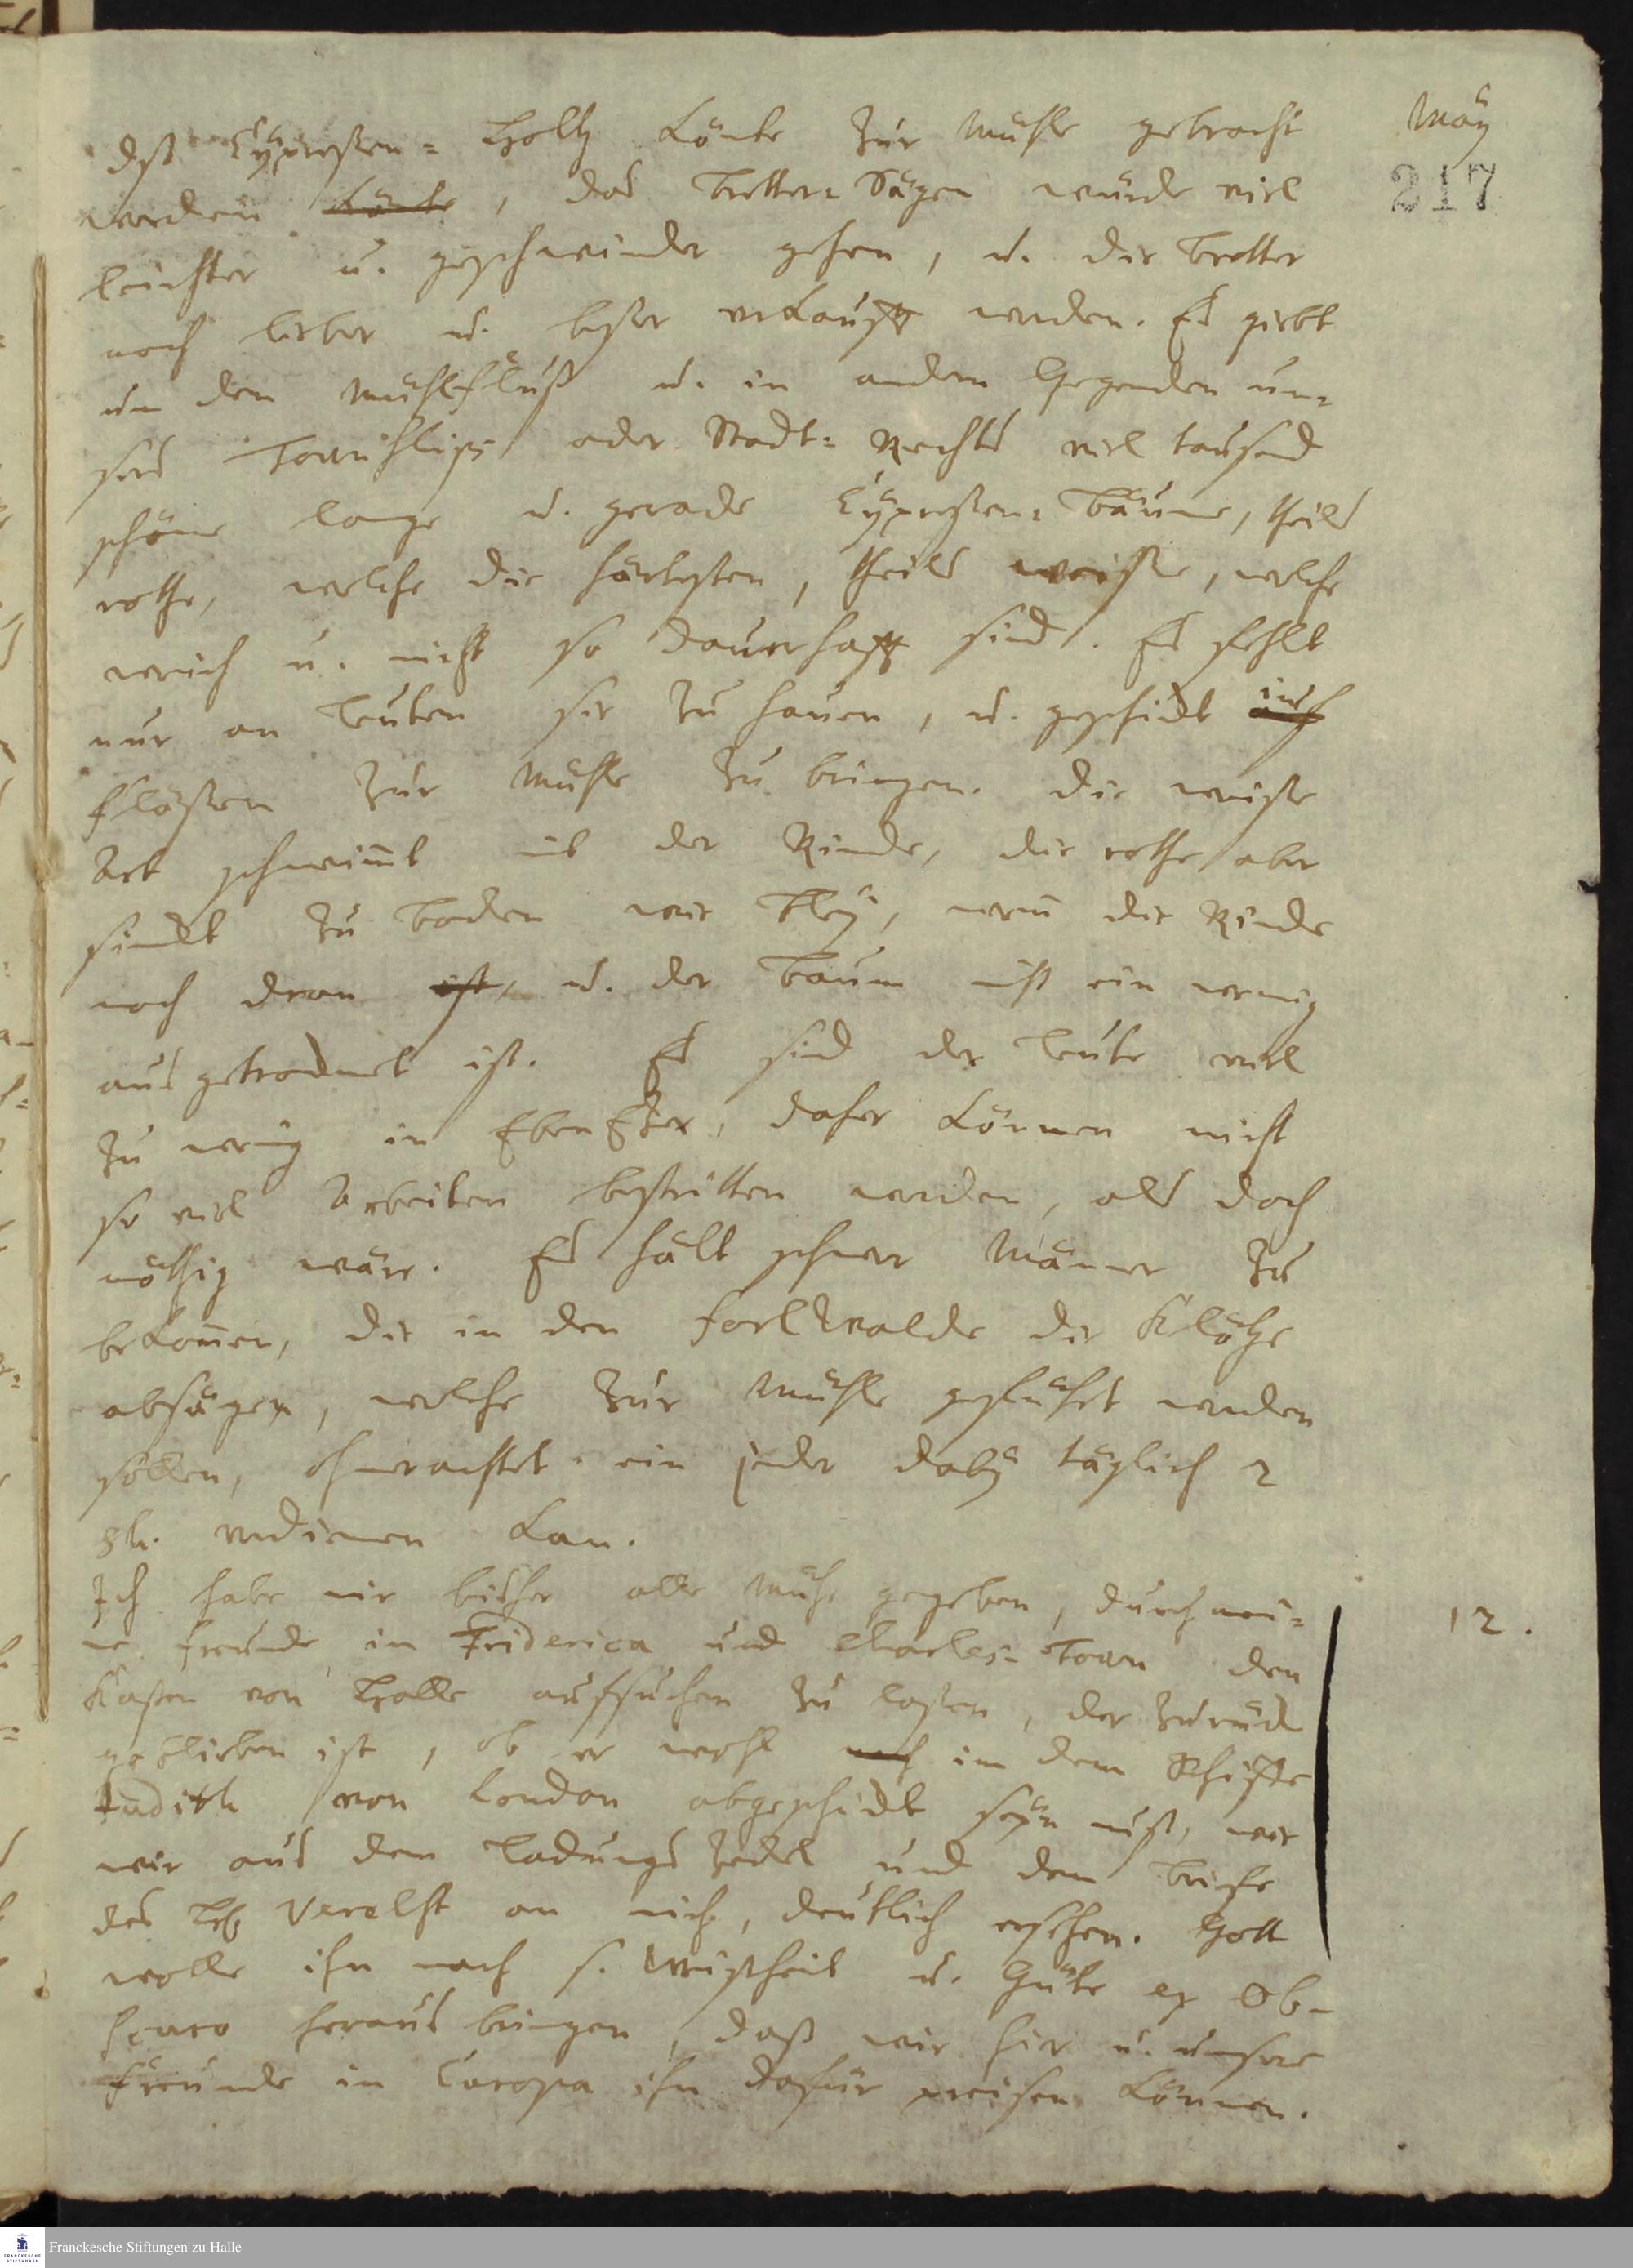 May
217
daß Cypreßen= Holtz könte zur Mühle gebracht
werden könte, das Bretter=Sägen würde viel
leichter u. geschwinder gehen, u. die Bretter
noch lieber u. beßer verkaufft werden. Es giebt
um den Mühlfluß u. in andern Gegenden un=
sers Townships oder Stadt=Rechts viel tausend
schöne lange u. gerade Cypreßen=Bäume, theils
rothe, welche die härtesten, theils weiße, welche
weich u. nicht so dauerhafft sind. Es fehlt
nur an Leuten sie zu hauen, u. geschickt
flößen zur Mühle zu bringen. Die weiße
Art schwimt mit der Rinde, die rothe aber
sinckt zu Boden wie Bley, wenn die Rinde
noch dran ist, u. der Baum nicht ein wenig
ausgetrocknet ist. Es sind der Leute viel
zu wenig in EbenEzer, daher können nicht
so viel Arbeiten bestritten werden, als doch
nöthig wäre. Es hält schwer Männer zu
bekomen, die in den Forlwalde die Klötze
absägen, welche zur Mühle geführt werden
sollen, ohnerachtet ein jeder dabey täglich 2
sh. verdienen kan.
12.
Ich habe mir bisher alle Mühe gegeben, durch mei=
ne Freunde in Friderica und Charles=Town den
Kasten von Halle aufsuchen zu laßen, der zurück
geblieben ist, ob er wohl noch in dem Schiffe
Judith von London abgeschickt seyn muß, wie
wir aus dem Ladungs Zedel und dem Briefe
des H. Verelst an mich, deutlich ersehen. Gott
wolle ihn nach s. Weisheit u. Güte ex Ob=
scuro heraus bringen, daß wir hier u. unsere
Freunde in Europa ihn dafür preisen können.
Franckesche Stiftungen zu Halle